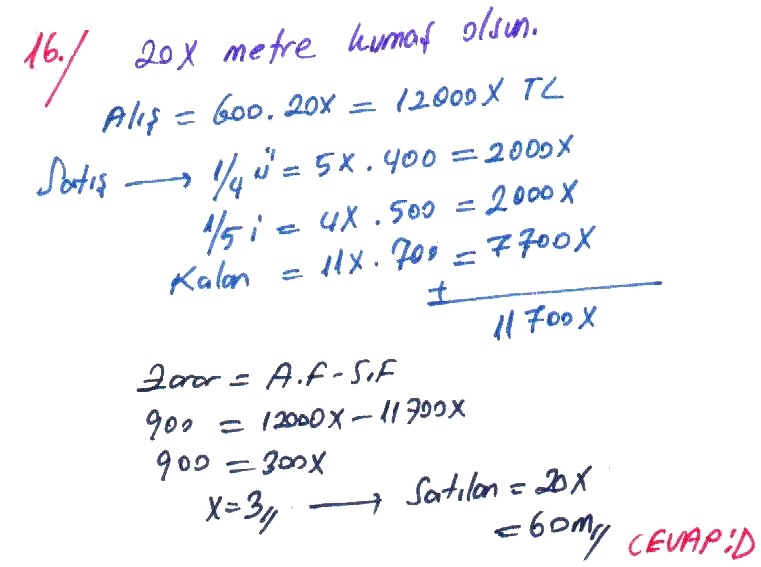 16./ 20X metre kumaş olsun.
Alış = 600.20X = 12000X TL
Satış → 1/4 ü = 5X.400 = 2000X
1/5 i = 4X.500 = 2000X
Kalan = 11X.700 = 7700X
+
11700X
Zarar = A.F-S.F
900 = 12000X-11700X
900 = 300X
X=3// → Satılan = 20X
= 60m// CEVAP:D